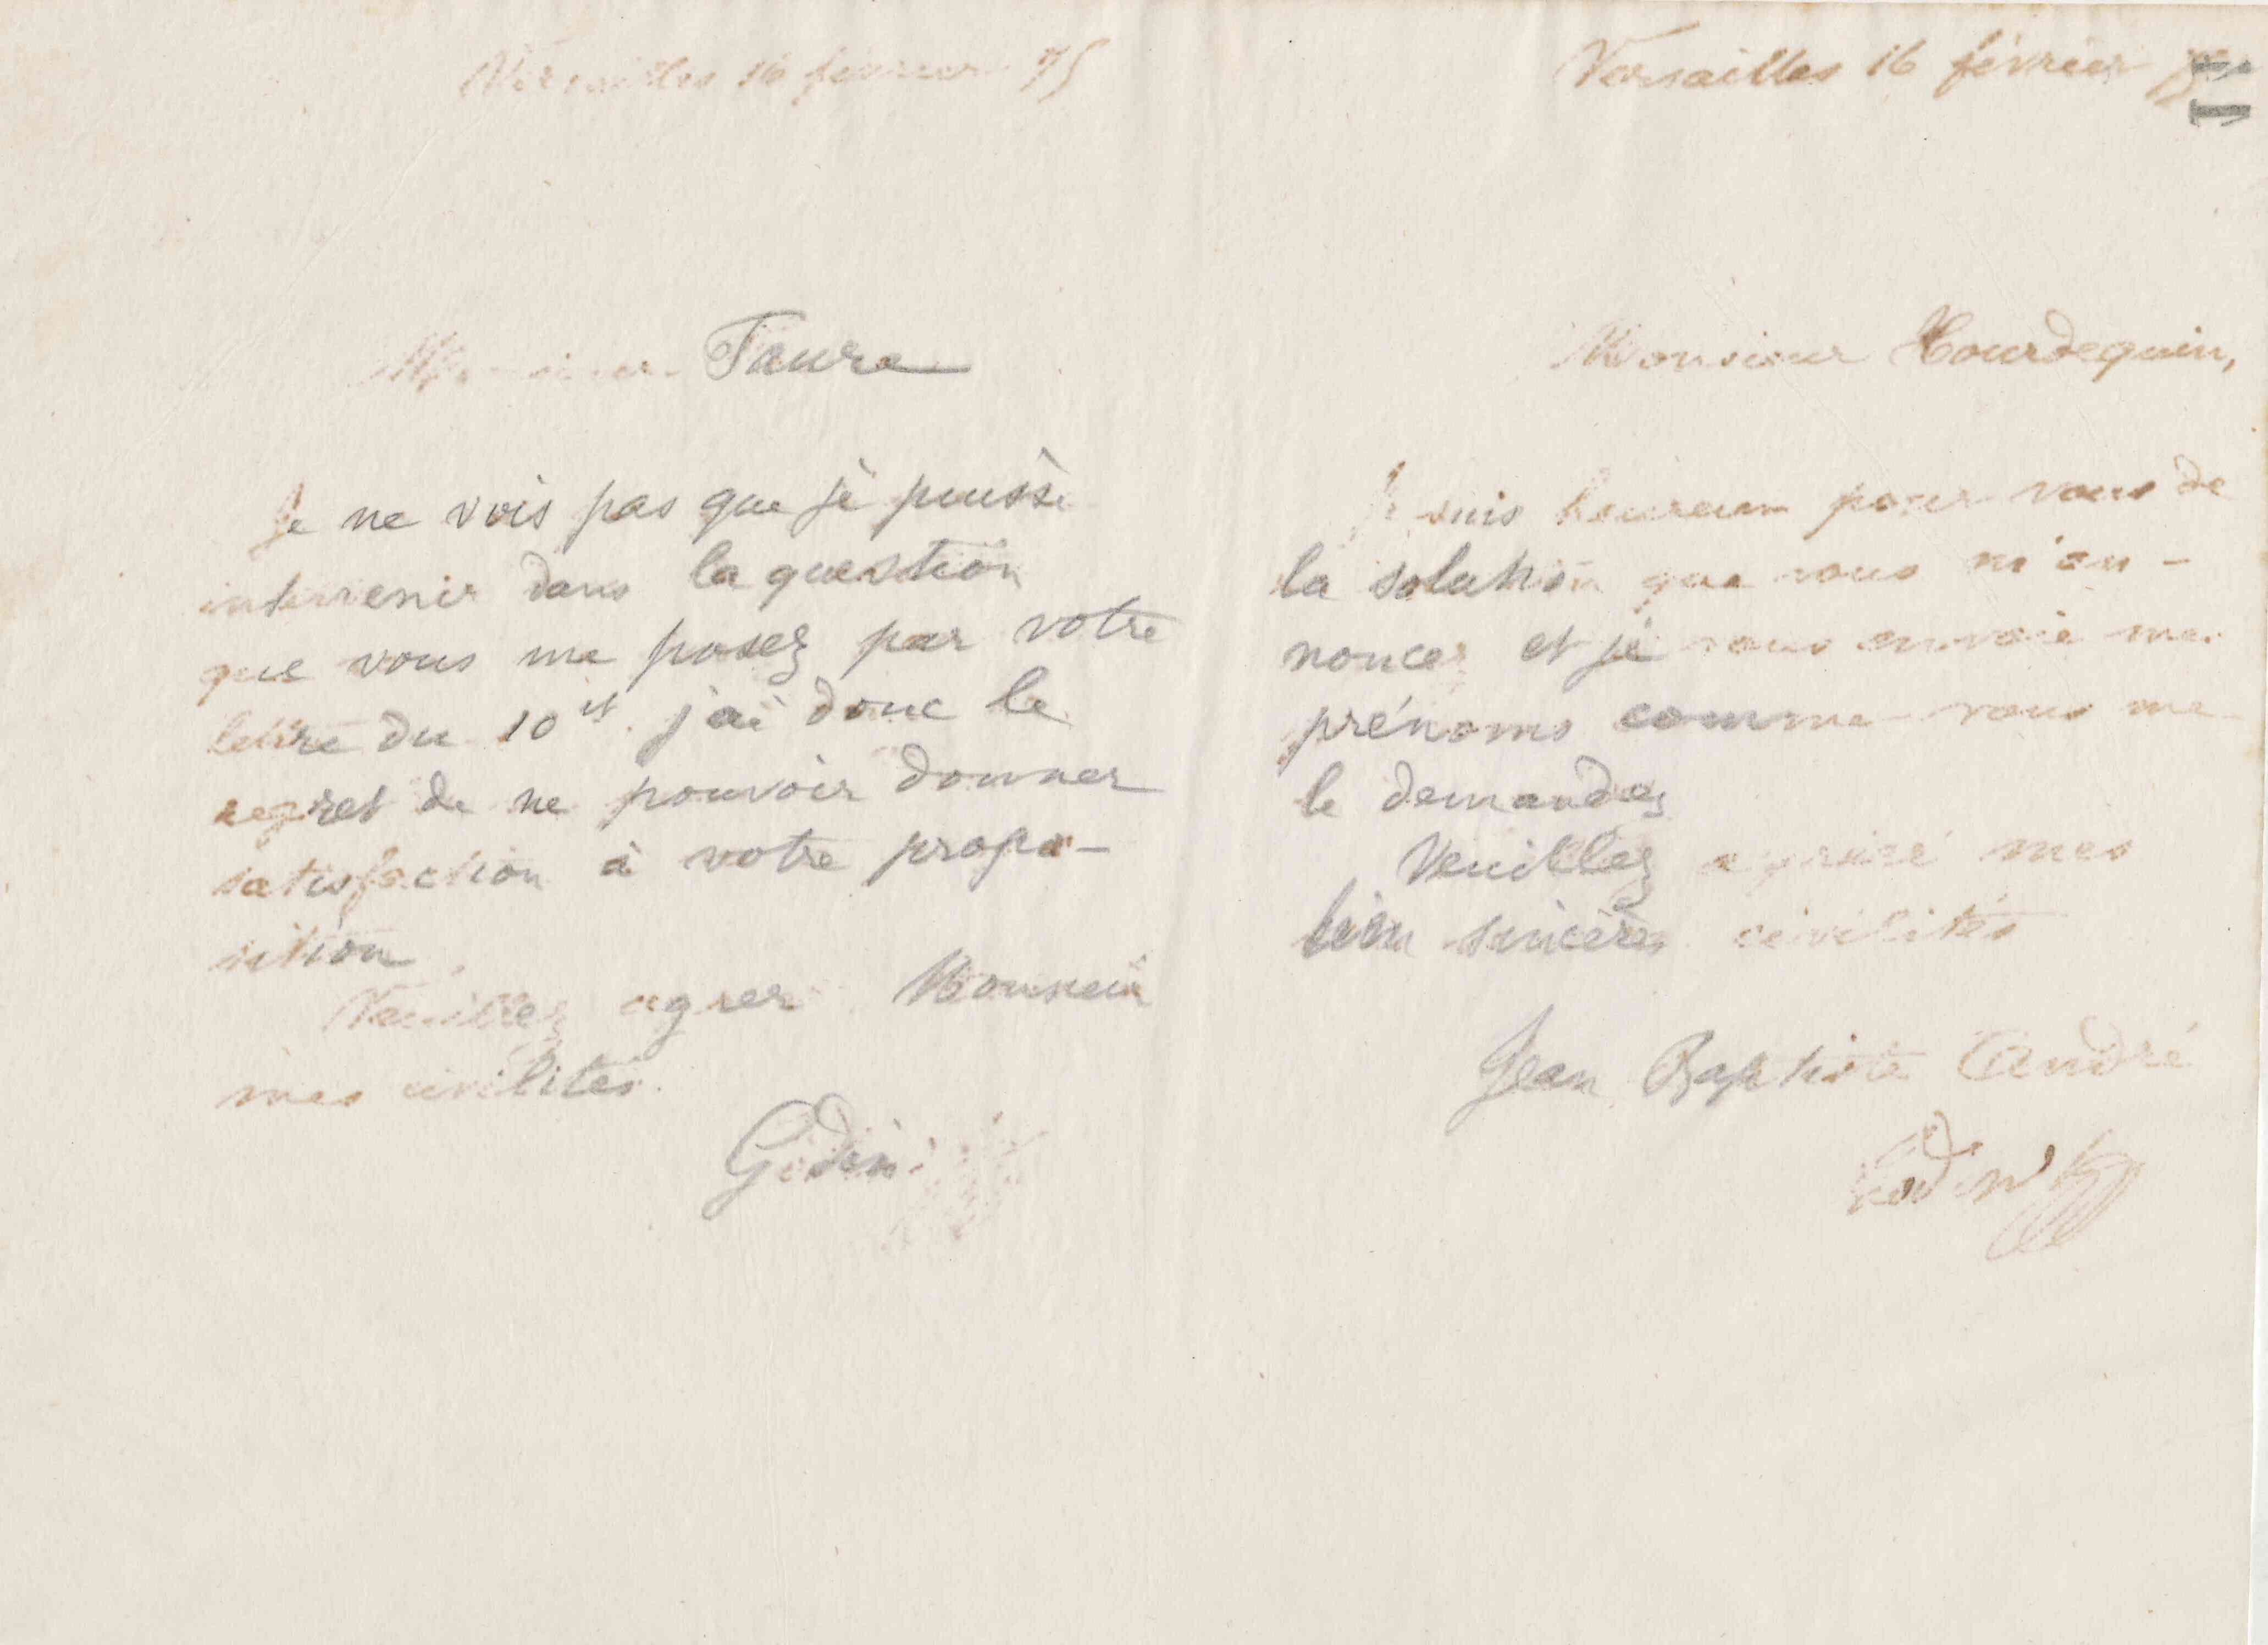 Versailles 16 février 75
Monsieur Faure
Je ne vois pas que je puisse
intervenir dans la question
que vous me posez par votre
lettre du 10 ct. j'ai donc le
regret de ne pouvoir donner
satisfaction à votre propo-
sition.
Veuillez agreer Monsieur
mes civilités.
Godin
Versailles 16 février
Monsieur Hourdequin,
Je suis heureux pour vous de
la solution que vous m'an-
noncez et je vous envoie mes
prénoms comme vous me
le demandez
Veuillez agréer mes
bien sincères civilités
Jean Baptiste André
Godin